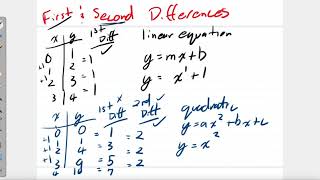 First & Second Differences
x y 1st Diff linear equation
0 1 = 1 y = mx + b
+1 1 2 = 1
+1 2 3 = 1 y = x¹ + 1
3 4
x y 1st Diff x 2nd Diff ✓ quadratic
+1 0 0 = 1 = 2 y = ax² + bx + c
+1 1 1 = 3 = 2
+1 2 4 = 5 = 2 y = x²
3 9 = 7 = 2
4 16